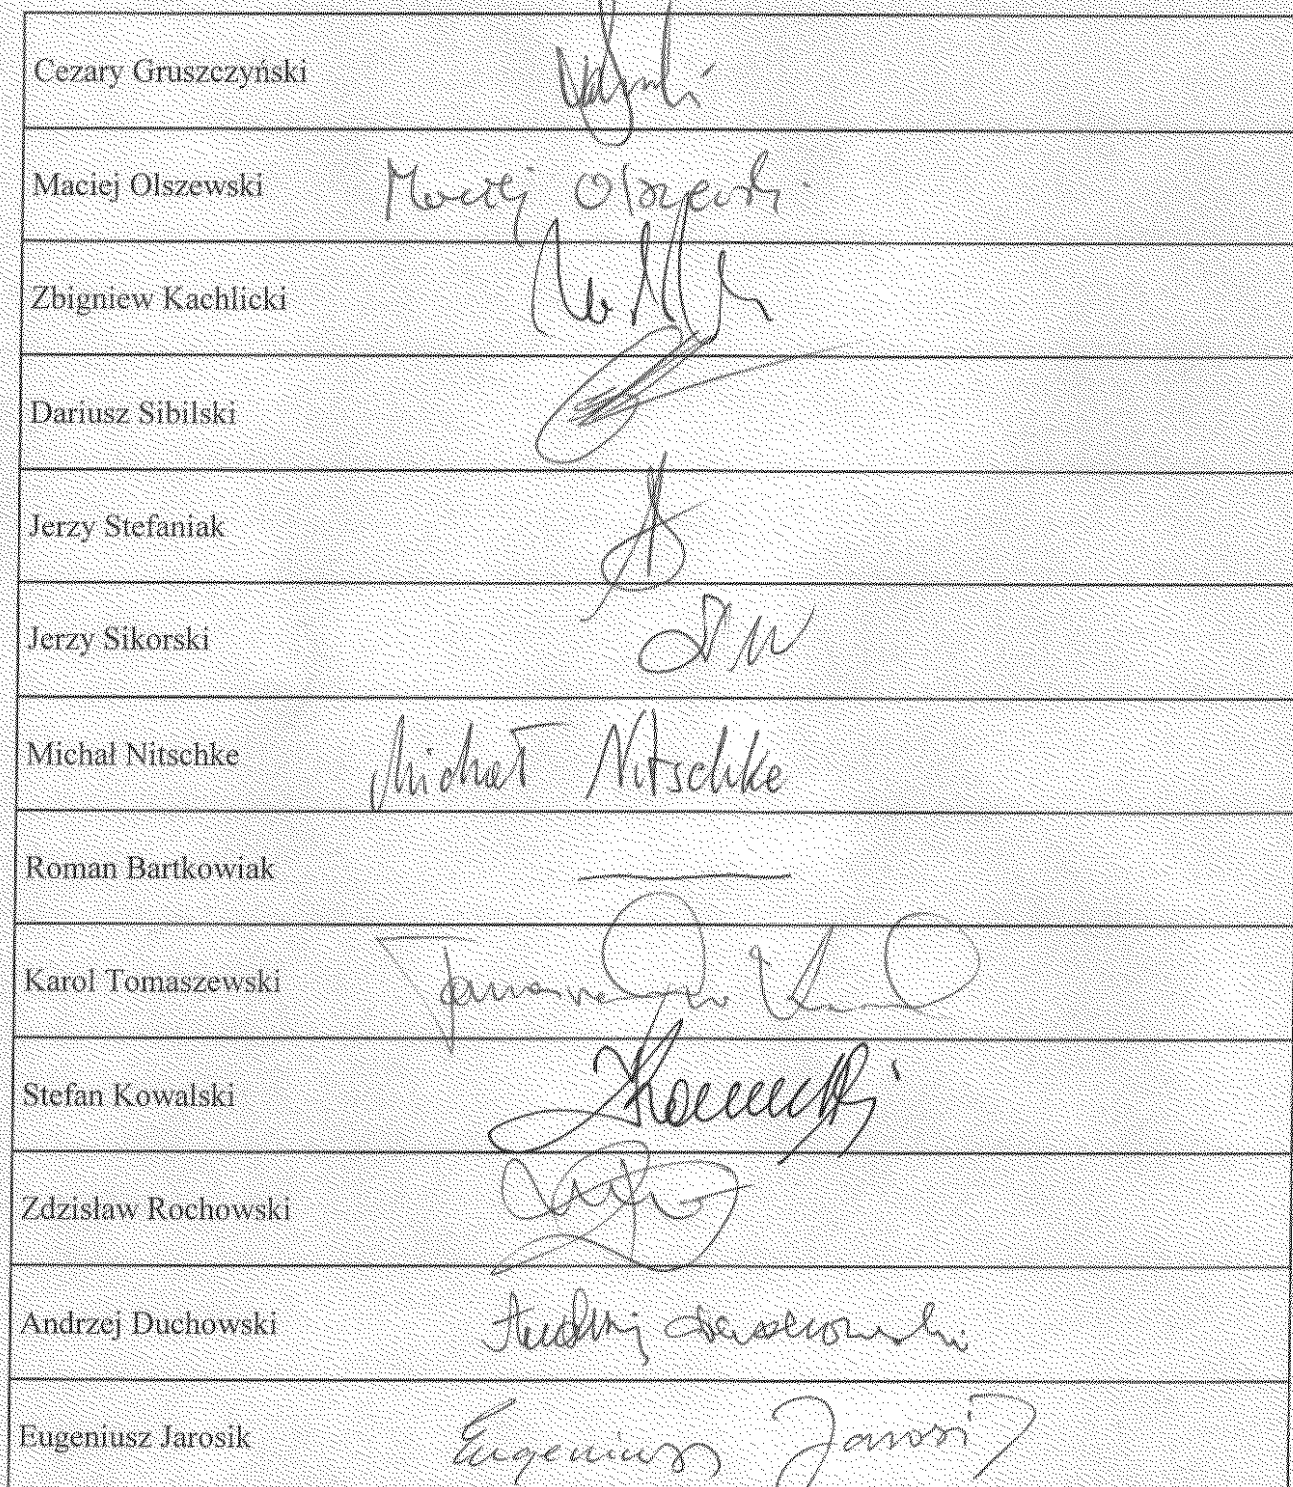 Cezary Gruszczyński
Maciej Olszewski Maciej Olszewski
Zbigniew Kachlicki
Dariusz Sibilski
Jerzy Stefaniak
Jerzy Sikorski
Michał Nitschke Michał Nitschke
Roman Bartkowiak
Karol Tomaszewski
Stefan Kowalski
Zdzisław Rochowski
Andrzej Duchowski Andrzej Duchowski
Eugeniusz Jarosik Eugeniusz Jarosik